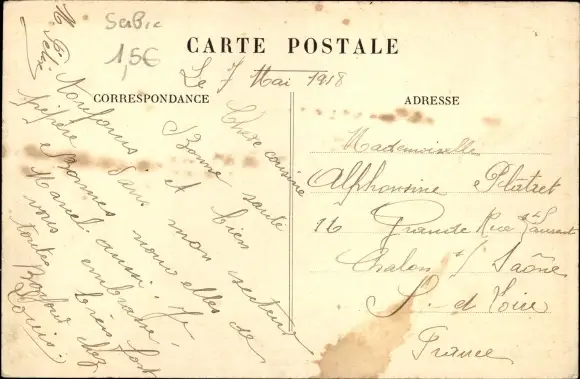 Serbie
1,5€
CARTE POSTALE
Le 7 Mai 1918
CORRESPONDANCE
ADRESSE
Chère cousine
Bonne santé
et bien
dans mon secteur
bonnes nouvelles de
pépère
Marcel aussi. Je
vous embrasse
bien fort
toutes Bonjour chez
Louis.
Mademoiselle
Alphonsine Platret
16 Grande Rue St Laurent
Chalon s/ Saône
S. et Loire
France